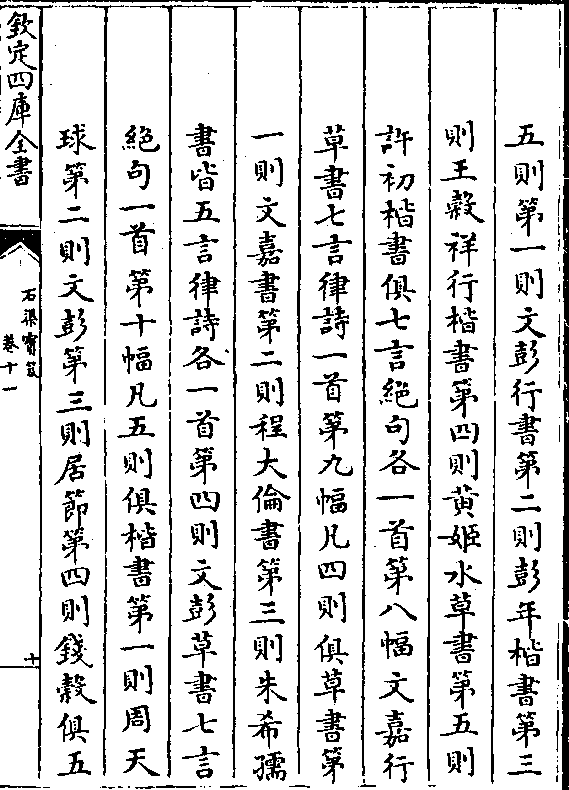 五則第一則文彭行書第二則彭年楷書第三
則王榖祥行楷書第四則黄姬水草書第五則
許初楷書俱七言絕句各一首第八幅文嘉行
草書七言律詩一首第九幅凡四則俱草書第
一則文嘉書第二則程大倫書第三則朱希孺
書皆五言律詩各一首第四則文彭草書七言
絕句一首第十幅凡五則俱楷書第一則周天
球第二則文彭第三則居節第四則錢榖俱五
欽定四庫全書
石渠寶笈
卷十一
十